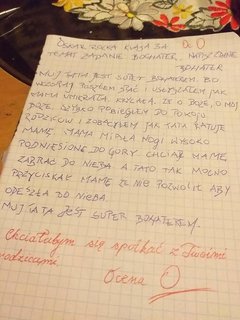 OSKAR ROLKA KLASA 3A
TEMAT ZADANIE BOHATER, NADZWYCZAJNIE
BOHATER
MUJ TATA JEST SUPER BOHATEREM. BO
WCZORAJ POSZŁEM SPAĆ I USŁYSZAŁEM JAK
MAMA UMIERAŁA. KRZYCZAŁA, ŻE O BOŻE, O MÓJ
BOŻE. SZYBKO POBIEGŁEM DO POKOJU
RODZICÓW I ZOBACZYŁEM JAK TATA RATUJE
MAMĘ. MAMA MIAŁA NOGI WYSOKO
PODNIESIONE DO GÓRY CHCIAŁ MAMĘ
ZABRAĆ DO NIEBA. A TATO TAK MOCNO
PRZYCISKAŁ MAMĘ ŻE NIE POZWOLIŁ ABY
ODESZŁA DO NIEBA.
MUJ TATA JEST SUPER BOHATEREM.
Chciałabym się spotkać z Twoimi
rodzicami.
Ocena